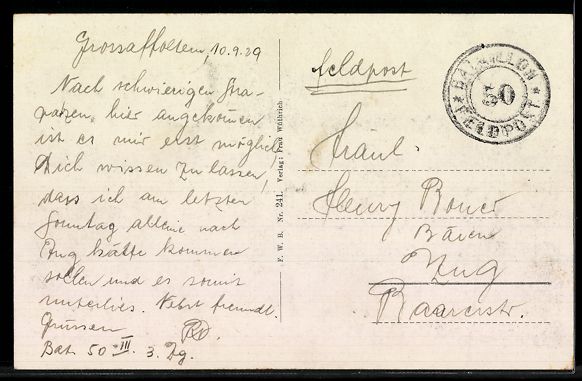 Grossaffoltern, 10.9.39
Nach schwierigen Stra-
pazen hier angekommen
ist es mir erst möglich
Dich wissen zu lassen,
dass ich am letzten
Sonntag alleine nach
Zug hätte kommen
sollen und es somit
unterlies. Nebst freundl.
Grüssen
Bat. 50 III 3. Zg.
F. W. B. Nr. 241. Verlag: Frau Wüthrich
Feldpost
BATAILLON
50
FELDPOST
Henry
Bären
Zug
Baarerstr.